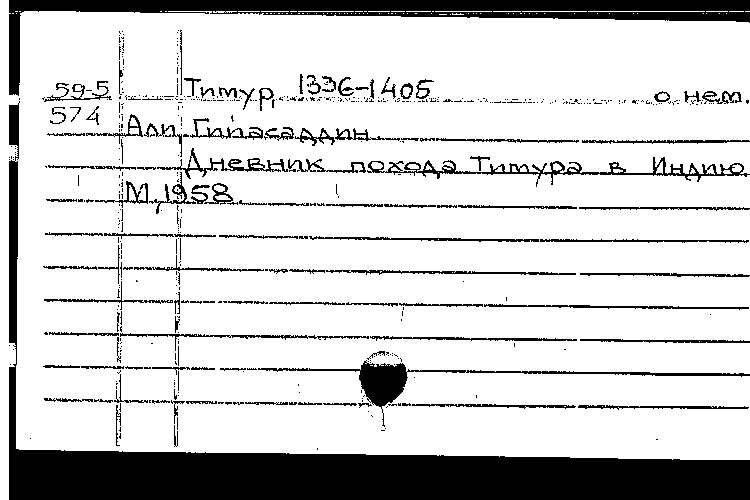 59-5 Тимур, 1336-1405 о нем.
574
Али, Гийасаддин.
Дневник похода Тимура в Индию.
М., 1958.